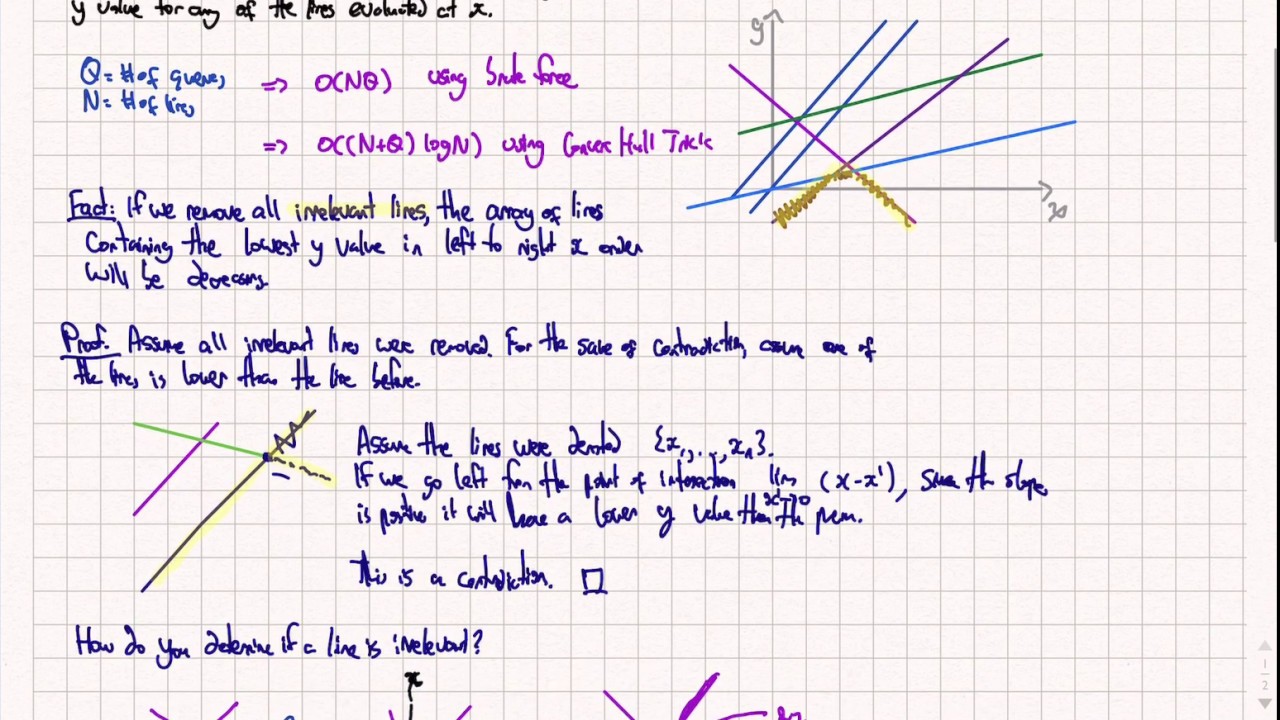 y value for any of the lines evaluated at x.
Q = # of queries
N = # of lines
=> O(NQ) using brute force
=> O((N+Q) log N) using Convex Hull Trick
y
x
Fact: If we remove all irrelevant lines, the array of lines
Containing the lowest y value in left to right x order
will be decreasing
Proof. Assume all irrelevant lines were removed. For the sake of contradiction, assume one of
the lines is lower than the line before.
Assume the lines were denoted {x₁, . . , xₙ}.
If we go left from the point of intersection lim (x-x'), since the slope
x'→0
is positive it will have a lower y value than the prev.
This is a contradiction. □
How do you determine if a line is irrelevant?
x
1
2